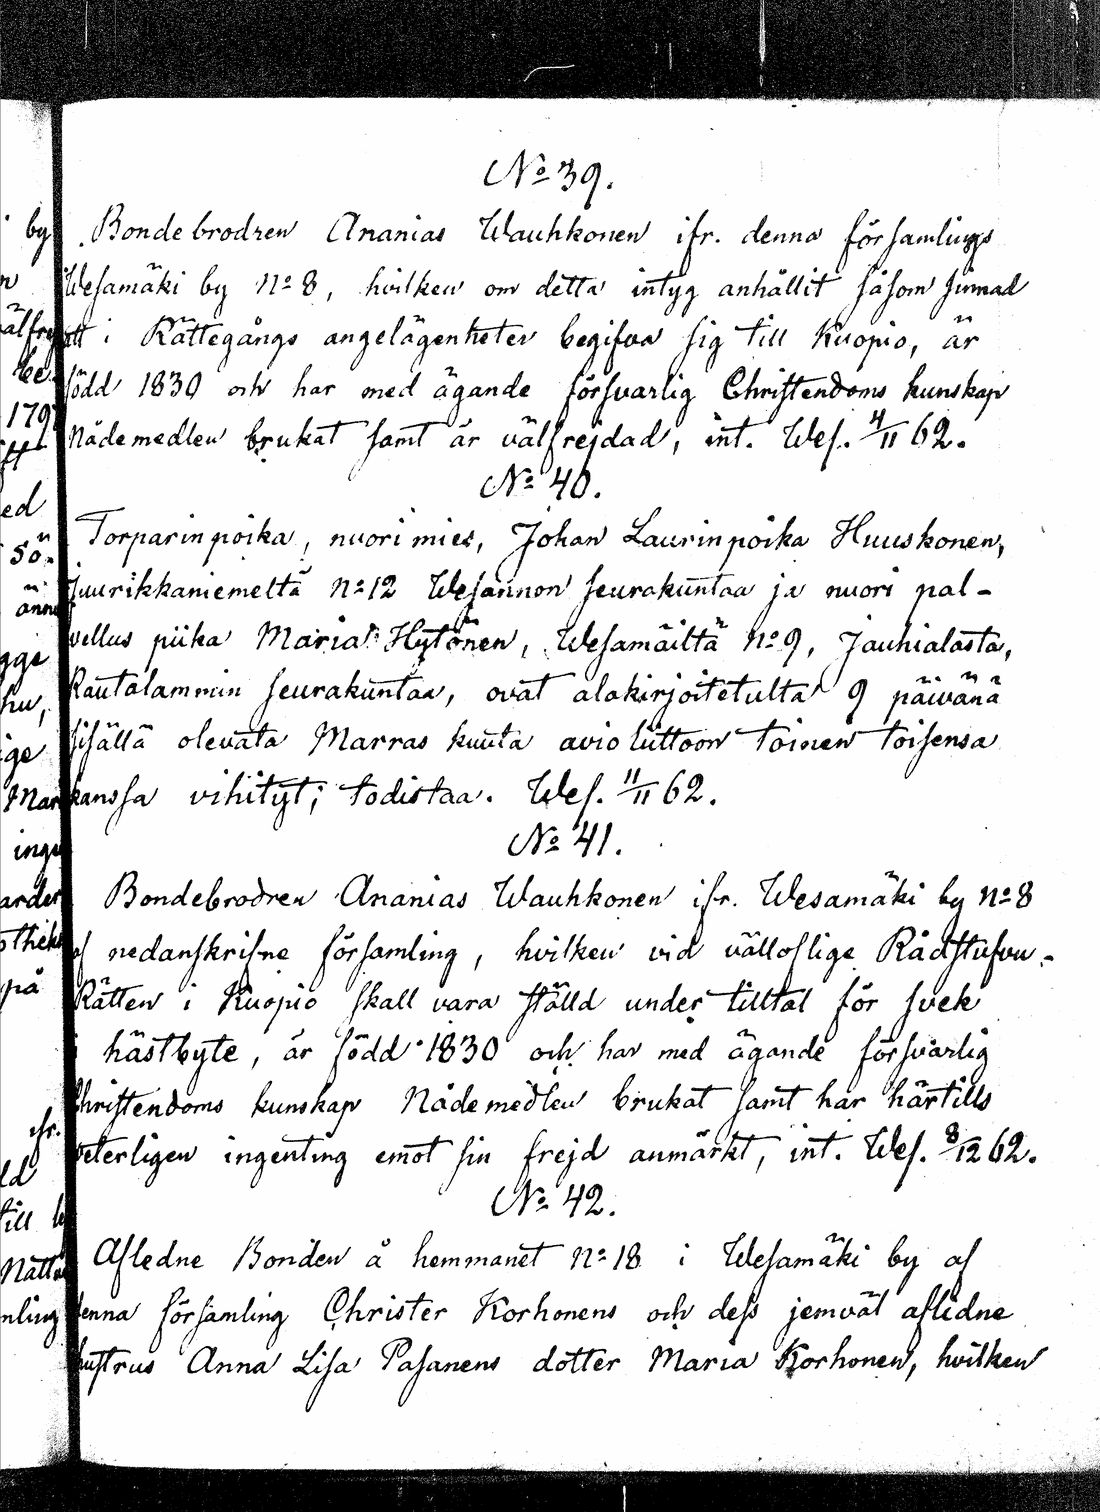 No 39.
Bondebrodren Ananias Wauhkonen ifr. denna församlings
Wesamäki by No 8, hvilken om detta intyg anhållit såsom sinnad
att i Rättegångs angelägenheter begifva sig till Kuopio, är
född 1830 och har med ägande försvarlig Christendoms kunskap
Nådemedlen brukat samt är välfrejdad, int. Wes. 4/11 62.
No 40.
Torparinpoika, nuori mies, Johan Laurinpoika Huuskonen,
Juurikkaniemeltä No 12 Wesannon seurakuntaa ja nuori pal-
vellus piika Maria Hytönen, Wesamäiltä No 9, Jauhialasta,
Rautalammin seurakuntaa, ovat alakirjoitetulta 9 päivänä
sisällä olevata Marras kuuta avioliittoon toinen toisensa
kanssa vihityt; todistaa. Wes. 11/11 62.
No 41.
Bondebrodren Ananias Wauhkonen ifr. Wesamäki by No 8
af nedanskrifne församling, hvilken vid välloflige Rådstufvu-
Rätten i Kuopio skall vara ställd under tilltal för svek
i hästbyte, är född 1830 och har med ägande försvarlig
Christendoms kunskap Nådemedlen brukat samt har härtills
veterligen ingenting emot sin frejd anmärkt, int. Wes. 8/12 62.
No 42.
Afledne Bonden å hemmanet No 18 i Wesamäki by af
denna församling Christer Korhonens och dess jemväl aflidne
hustrus Anna Lisa Pasanens dotter Maria Korhonen, hvilken